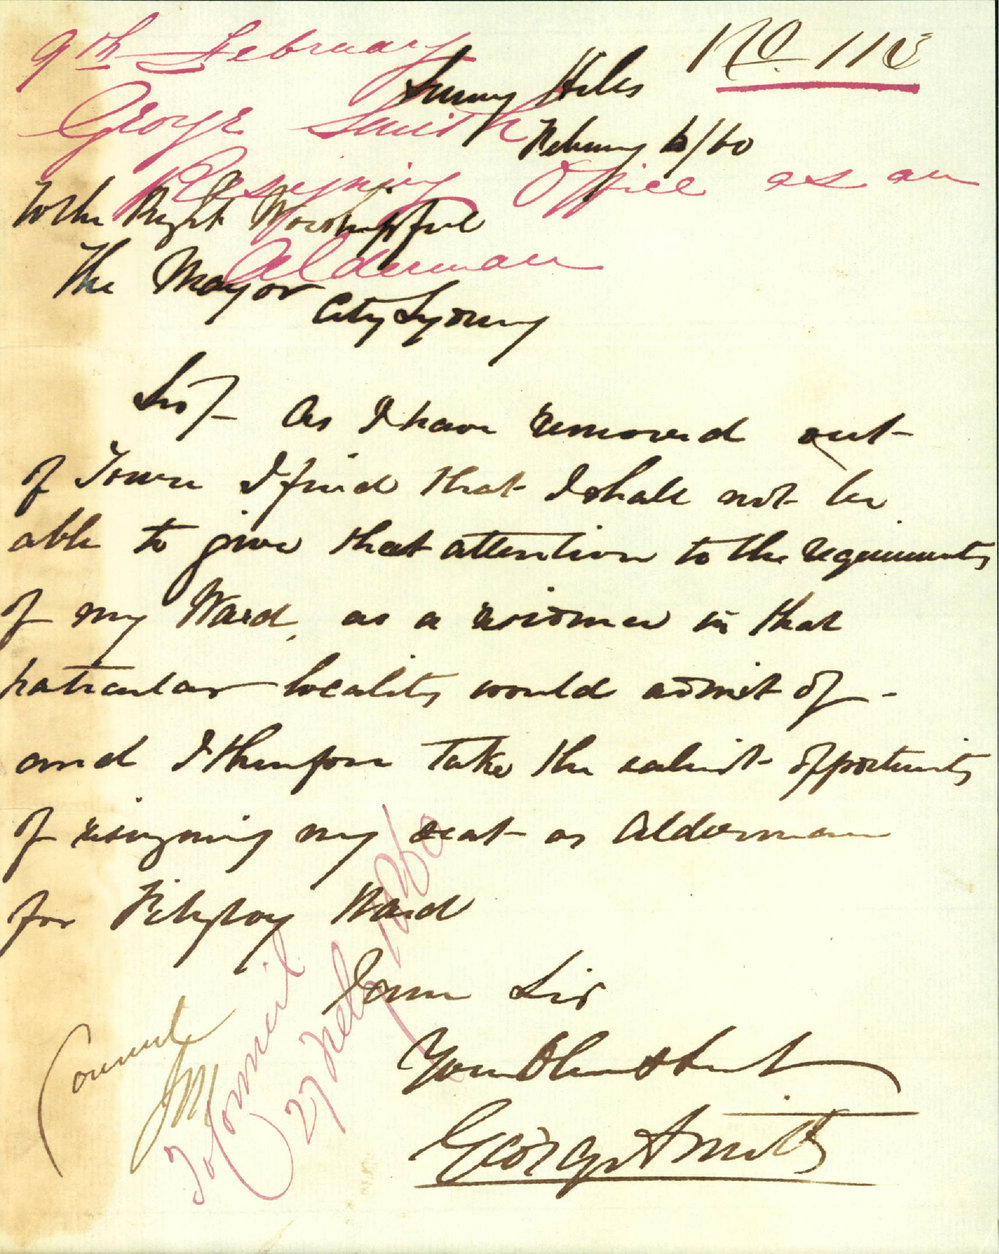 9th February
No 118
George Smith
Resigning Office as an
Alderman
Sunny Hills
February 6/60
To the Right Worshipful
The Mayor
City Sydney
Sir/- As I have removed out
of Town I find that I shall not be
able to give that attention to the requirements
of my Ward, as a residence in that
paticular locality would admit of -
and I therefore take the earliest opportunity
of resigning my seat as Alderman
for Fitzroy Ward
I am Sir
Your Obm Servt
George Smith
Council
To Council
27 Feb 1860